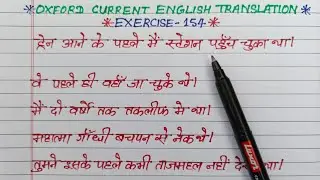 *OXFORD CURRENT ENGLISH TRANSLATION*
*EXERCISE-154*
ट्रेन आने के पहले मैं स्टेशन पहुँच चुका था।
वे पहले ही वहाँ जा चुके थे।
मैं दो वर्षों तक तकलीफ में था।
महात्मा गाँधी बचपन से नेक थे।
तुमने इसके पहले कभी ताजमहल नहीं था।